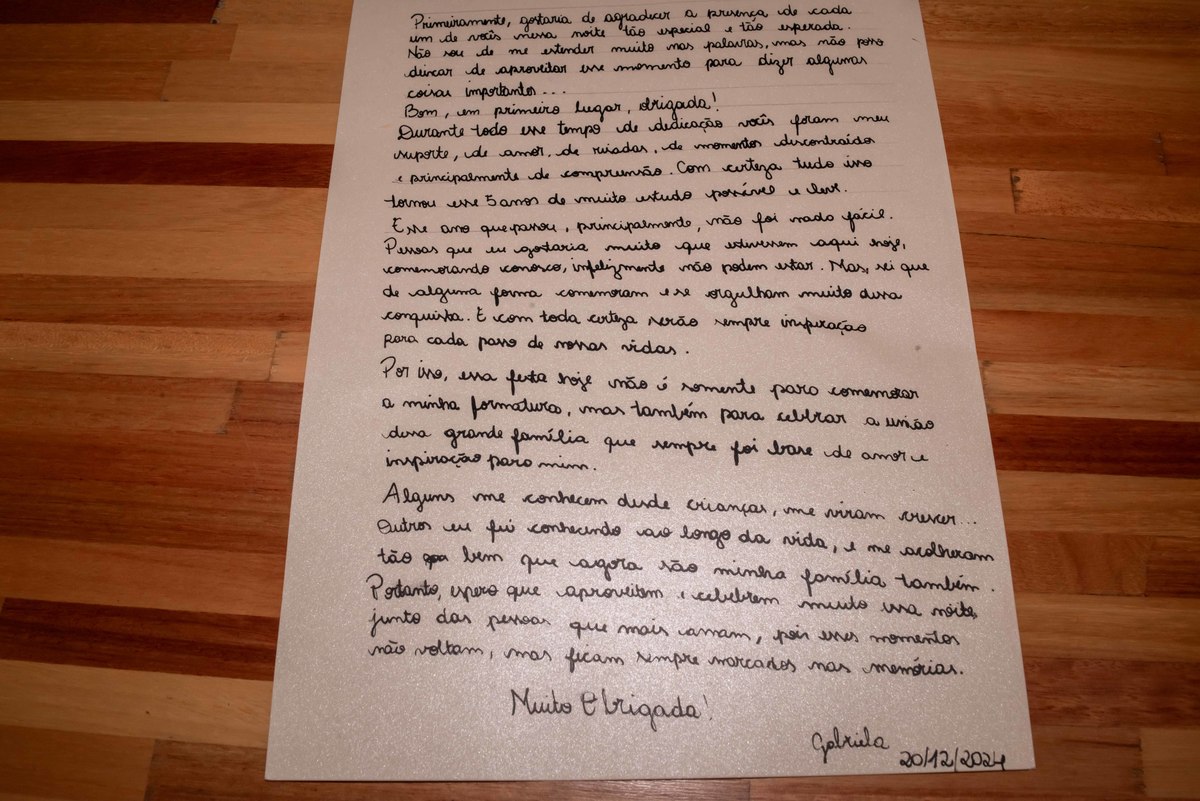 Primeiramente, gostaria de agradecer a presença de cada
um de vocês nessa noite tão especial e tão esperada.
Não sou de me estender muito nas palavras, mas não posso
deixar de aproveitar esse momento para dizer algumas
coisas importantes...
Bom, em primeiro lugar, obrigada!
Durante todo esse tempo de dedicação vocês foram meu
suporte, de amor, de risadas, de momentos descontraídos
e principalmente de compreensão. Com certeza tudo isso
tornou esse 5 anos de muito estudo possível e leve.
Esse ano que passou, principalmente, não foi nada fácil.
Pessoas que eu gostaria muito que estivessem aqui hoje,
comemorando conosco, infelizmente não podem estar. Mas, sei que
de alguma forma comemoram e se orgulham muito dessa
conquista. E com toda certeza serão sempre inspiração
para cada passo de nossas vidas.
Por isso, essa festa hoje não é somente para comemorar
a minha formatura, mas também para celebrar a união
dessa grande família que sempre foi base de amor e
inspiração para mim.
Alguns me conhecem desde crianças, me viram crescer...
Outros eu fui conhecendo ao longo da vida, e me acolheram
tão bem que agora são minha família também.
Portanto, espero que aproveitem e celebrem muito essa noite,
junto das pessoas que mais amam, pois esses momentos
não voltam, mas ficam sempre marcados nas memórias.
Muito Obrigada!
Gabriela
20/12/2024